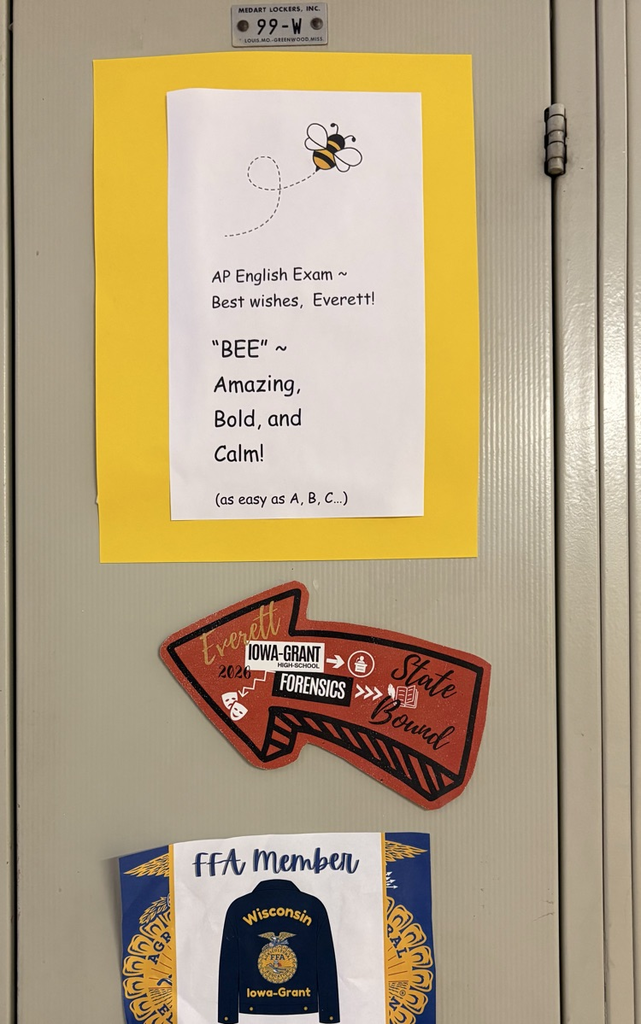 MEDART LOCKERS, INC.
99-W
LOUIS, MO.-GREENWOOD, MISS.
AP English Exam ~
Best wishes, Everett!
“BEE” ~
Amazing,
Bold, and
Calm!
(as easy as A, B, C...)
Everett
2026
IOWA-GRANT
HIGH-SCHOOL
FORENSICS
State
Bound
FFA Member
Wisconsin
FFA
Iowa-Grant
AGR
RAL